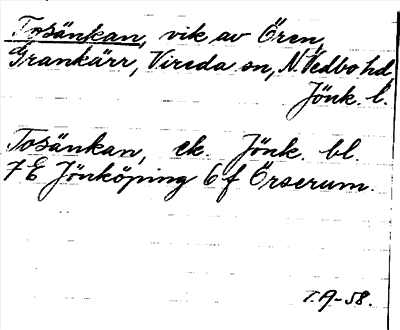 Tosänkan, vik av Ören,
Grankärr, Vireda sn, N. Vedbo hd,
Jönk. l.
Tosänkan, ek. Jönk. bl.
7 E Jönköping 6 f Örserum.
T.A-58.